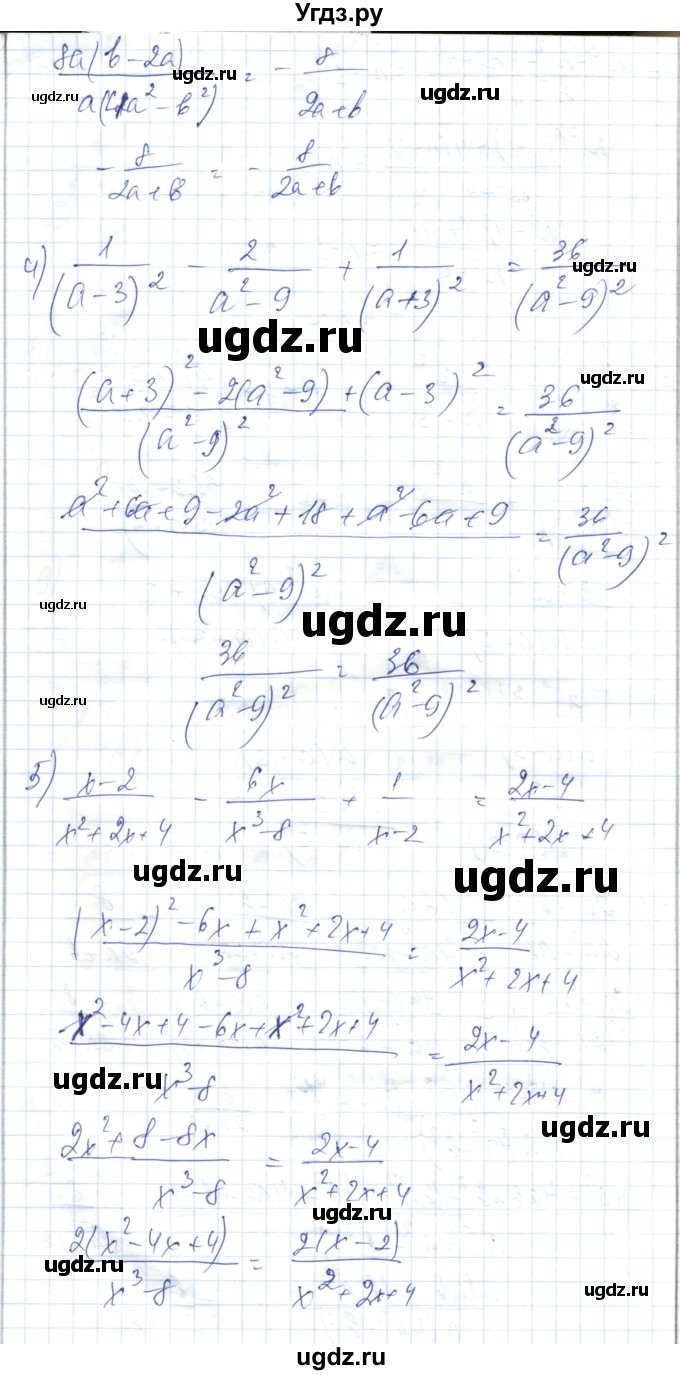 Угдз.ру
8a(b-2a) / a(4a²-b²) = - 8 / 2a+b
ugdz.ru
ugdz.ru
- 8 / 2a+b = - 8 / 2a+b
ugdz.ru
4) 1 / (a-3)² - 2 / a²-9 + 1 / (a+3)² = 36 / (a²-9)²
ugdz.ru
ugdz.ru
(a+3)² - 2(a²-9) + (a-3)² / (a²-9)² = 36 / (a²-9)²
ugdz.ru
a²+6a+9-2a²+18+a²-6a+9 / (a²-9)² = 36 / (a²-9)²
ugdz.ru
ugdz.ru
36 / (a²-9)² = 36 / (a²-9)²
ugdz.ru
5) x-2 / x²+2x+4 - 6x / x³-8 + 1 / x-2 = 2x-4 / x²+2x+4
ugdz.ru
ugdz.ru
(x-2)²-6x+x²+2x+4 / x³-8 = 2x-4 / x²+2x+4
x²-4x+4-6x+x²+2x+4 / x³-8 = 2x-4 / x²+2x+4
ugdz.ru
ugdz.ru
2x²+8-8x / x³-8 = 2x-4 / x²+2x+4
ugdz.ru
2(x²-4x+4) / x³-8 = 2(x-2) / x²+2x+4
ugdz.ru
ugdz.ru
ugdz.ru